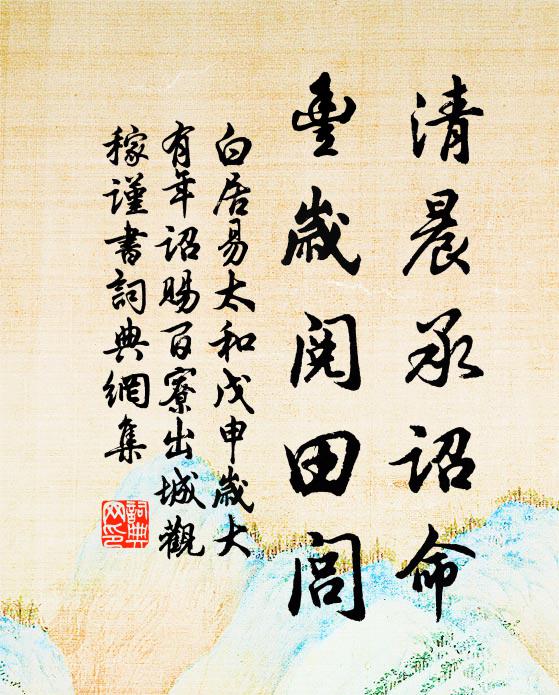 清晨承詔命
豊歲閱田閭
白居易太和戊申歲大
有年詔賜百寮出城觀
稼謹書詞典網集
詞典
网印